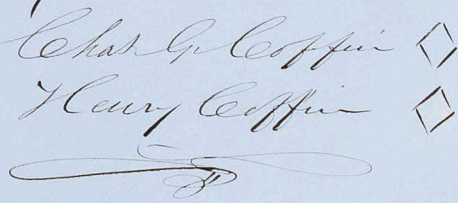 Chas G Coffin
Henry Coffin